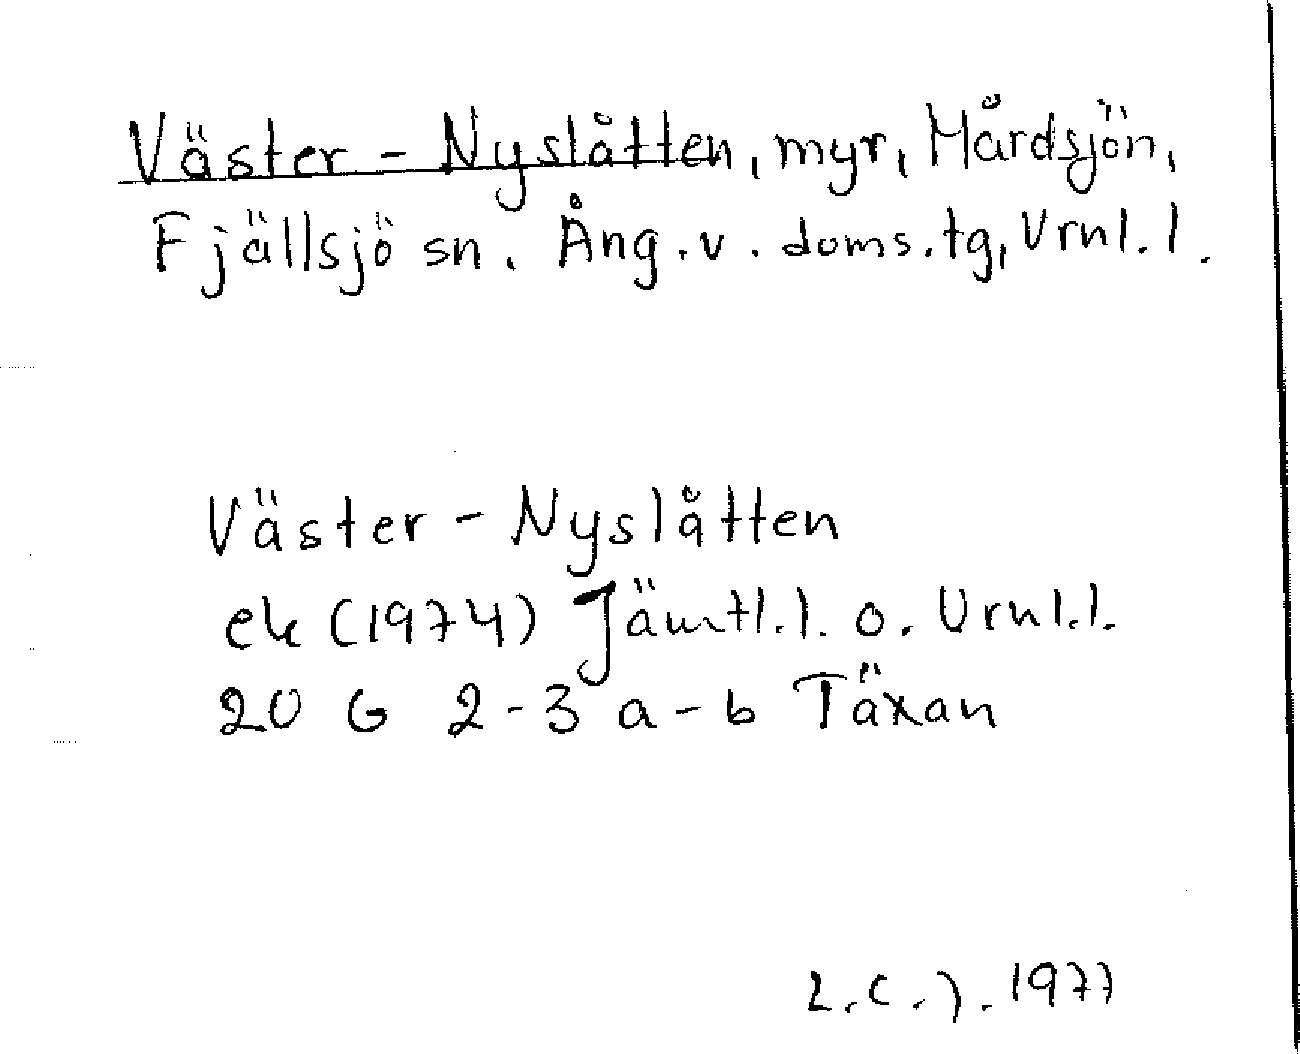 Väster-Nyslåtten, myr, Mårdsjön,
Fjällsjö sn. Ång. v. doms. tg, Vrnl. l.
Väster-Nyslåtten
ek (1974) Jämtl. l. o. Vrnl. l.
20 G 2-3 a-b Täxan
L. C. J. 1977